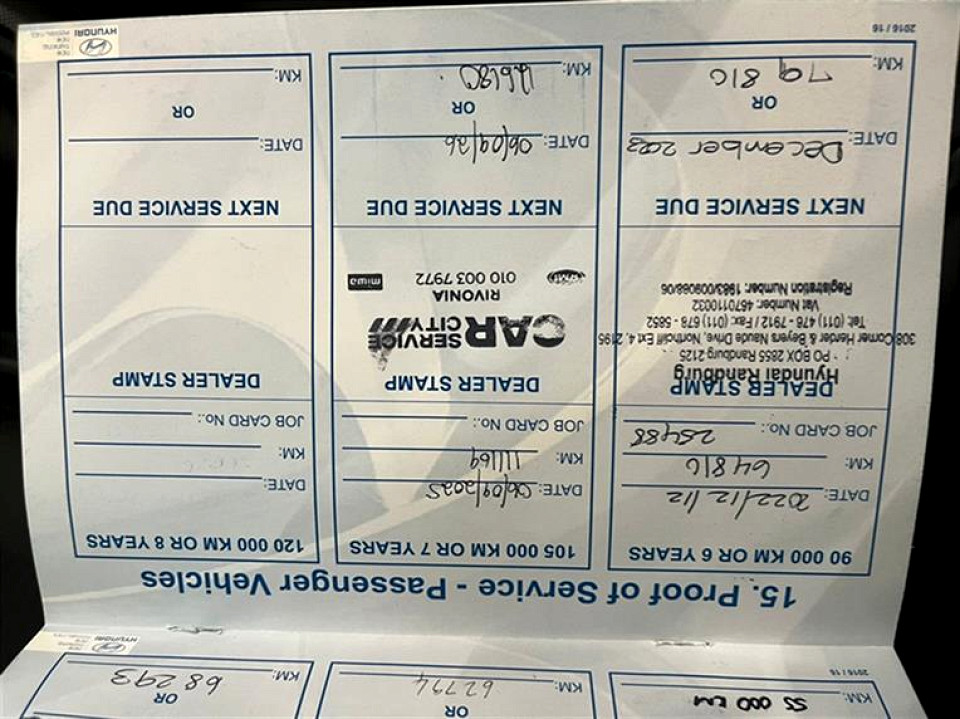 KM: 55 000 KM
2016 / 16
OR
KM: 62774
OR
KM: 68293
HYUNDAI
NEW THINKING.
NEW POSSIBILITIES.
15. Proof of Service - Passenger Vehicles
90 000 KM OR 6 YEARS
DATE: 2022/12/12
KM: 64816
JOB CARD No.:
DEALER STAMP
Hyundai Randburg
PO BOX 2855 Randburg 2125
308 Corner Harder & Beyers Naude Drive, Northcliff Ext 4, 2195
Tel: (011) 476 - 7912 / Fax: (011) 678 - 5652
Vat Number: 4670110032
Registration Number: 1983/009088/06
NEXT SERVICE DUE
DATE: December 2023
OR
KM: 79816
2016 / 16
105 000 KM OR 7 YEARS
DATE: 06/09/2025
KM: 111169
JOB CARD No.:
DEALER STAMP
CAR SERVICE CITY
RIVONIA
010 003 7972
miwa
NEXT SERVICE DUE
DATE: 06/09/26
OR
KM:
120 000 KM OR 8 YEARS
DATE:
KM:
JOB CARD No.:
DEALER STAMP
NEXT SERVICE DUE
DATE:
OR
KM:
HYUNDAI
NEW THINKING.
NEW POSSIBILITIES.